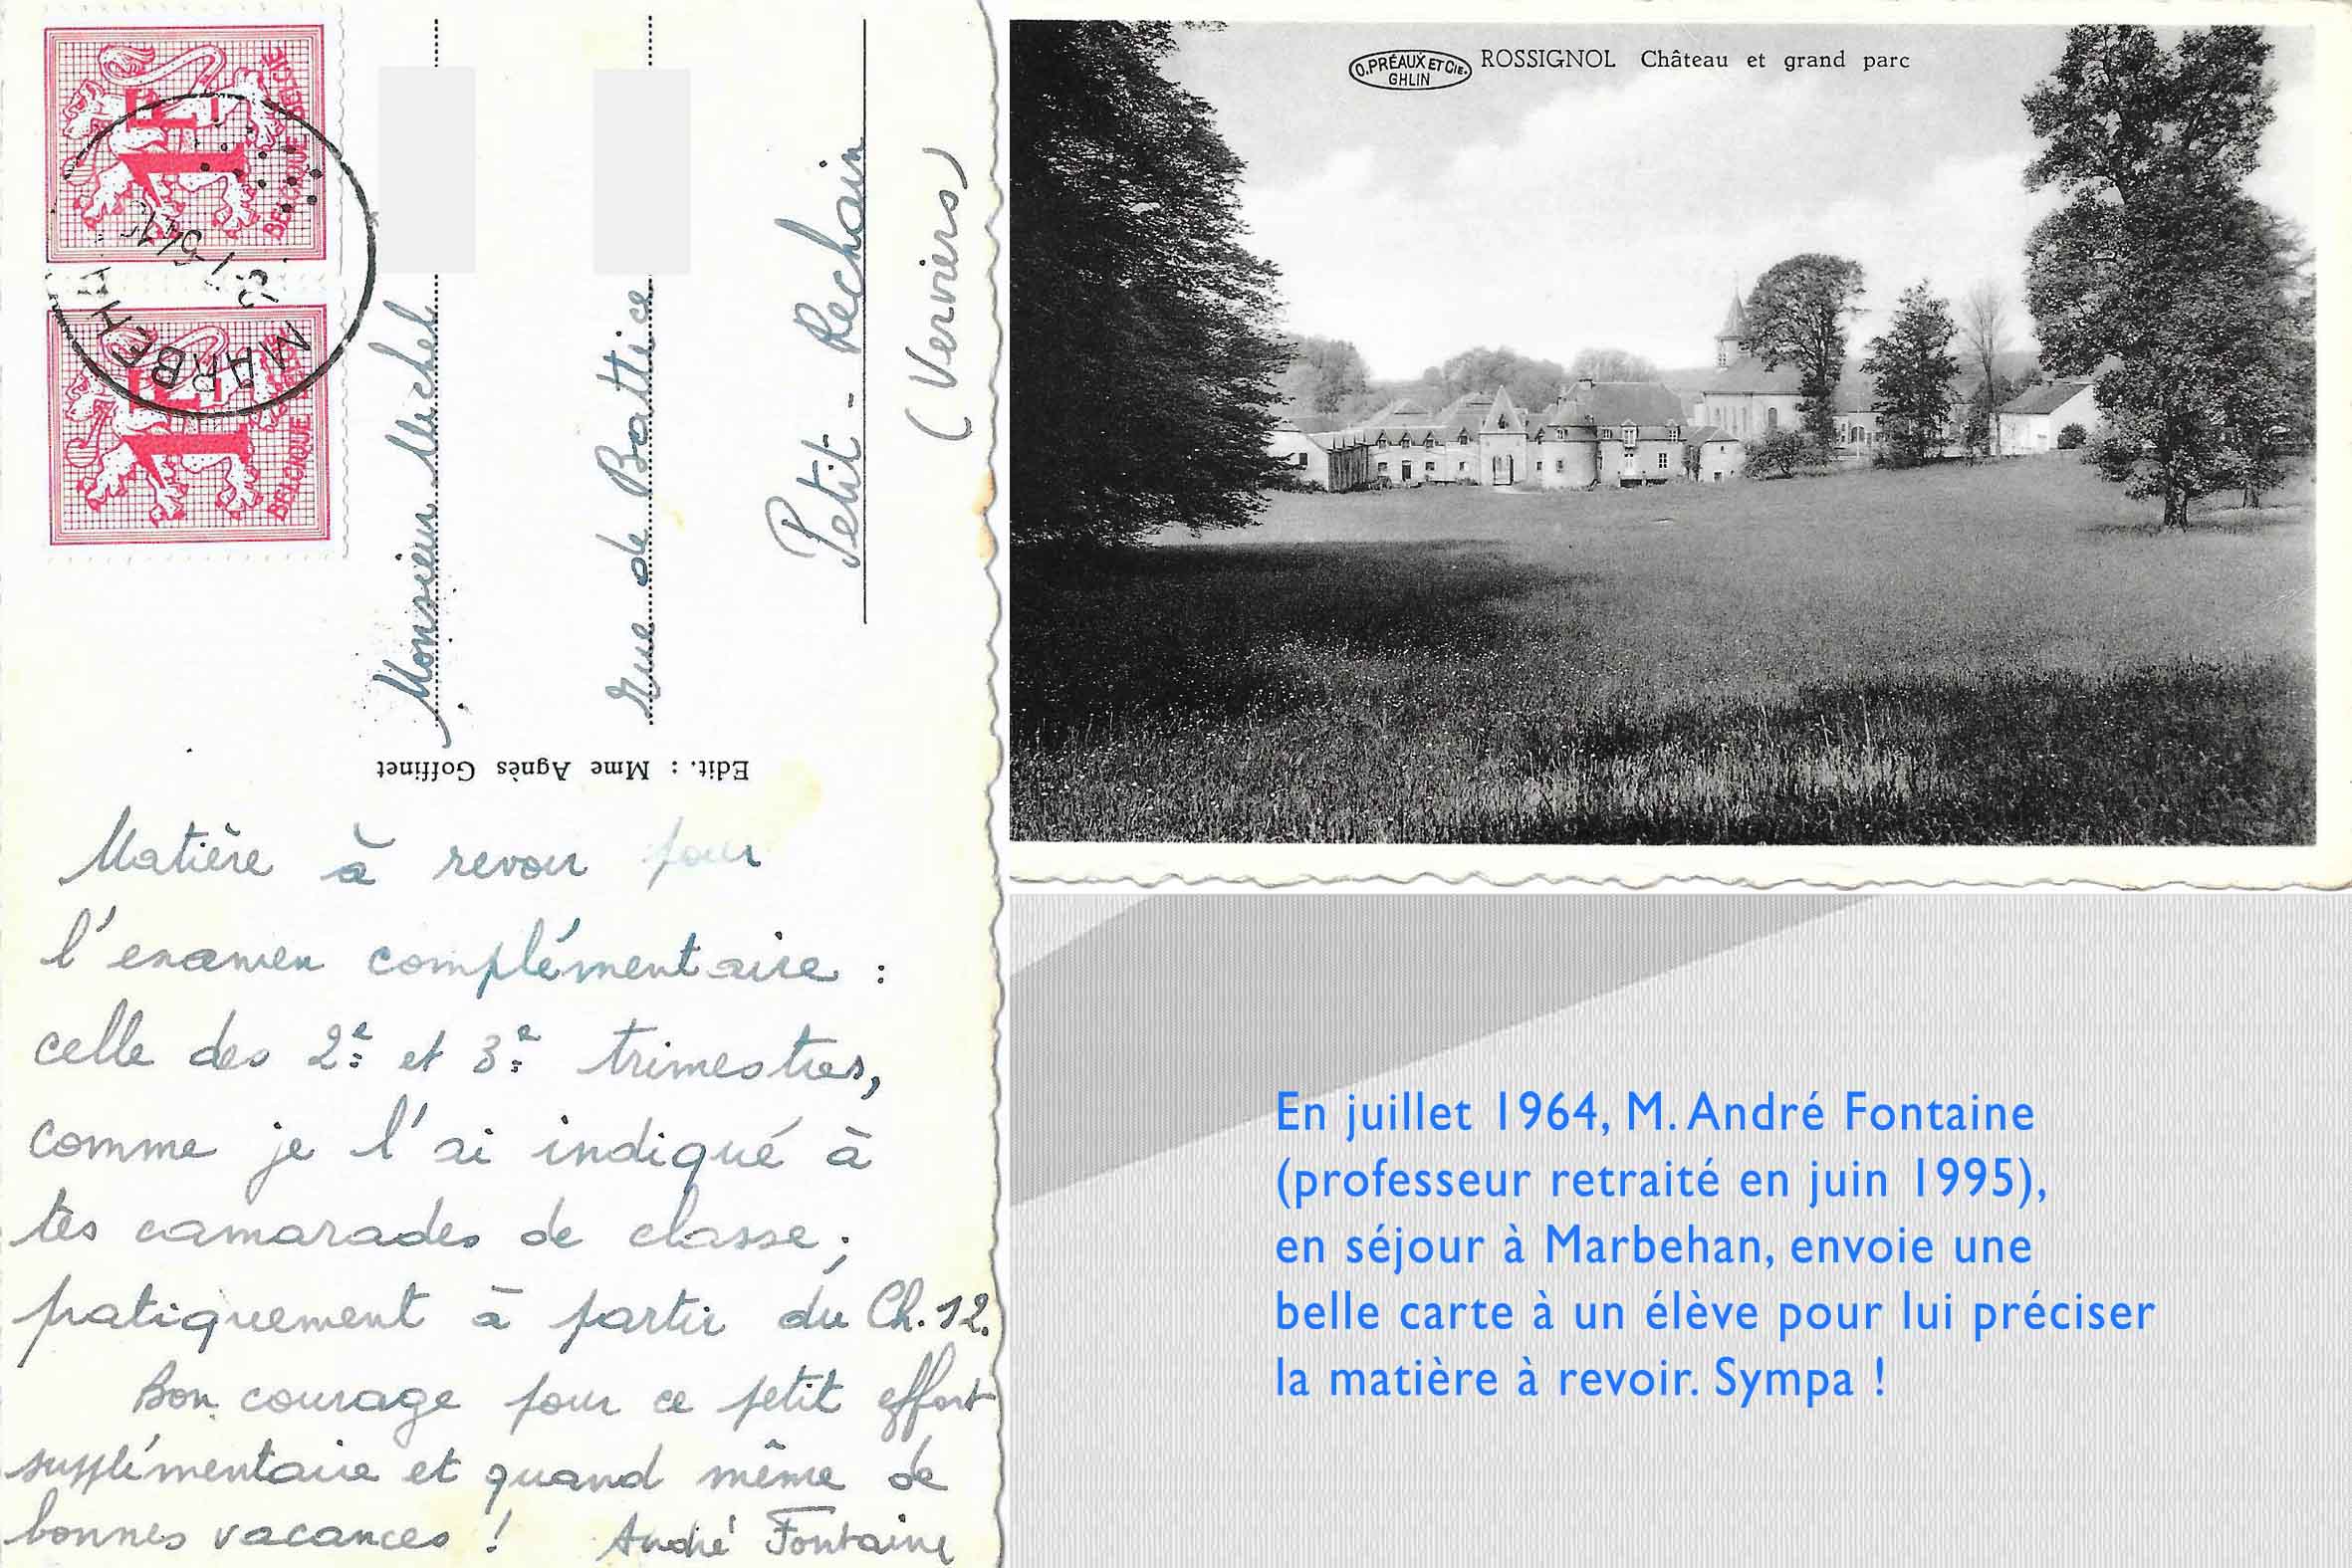 BELGIQUE BELGIE
1F
BELGIQUE
1F
MARBEHA
Monsieur Michel
rue de Battice
Petit-Rechain
(Verviers)
Edit. : Mme Agnès Goffinet
Matière à revoir pour
l'examen complémentaire :
celle des 2e et 3e trimestres,
comme je l'ai indiqué à
tes camarades de classe ;
pratiquement à partir du Ch. 12.
Bon courage pour ce petit effort
supplémentaire et quand même de
bonnes vacances ! André Fontaine
O. PRÉAUX ET CIE.
GHLIN
ROSSIGNOL Château et grand parc
En juillet 1964, M. André Fontaine
(professeur retraité en juin 1995),
en séjour à Marbehan, envoie une
belle carte à un élève pour lui préciser
la matière à revoir. Sympa !